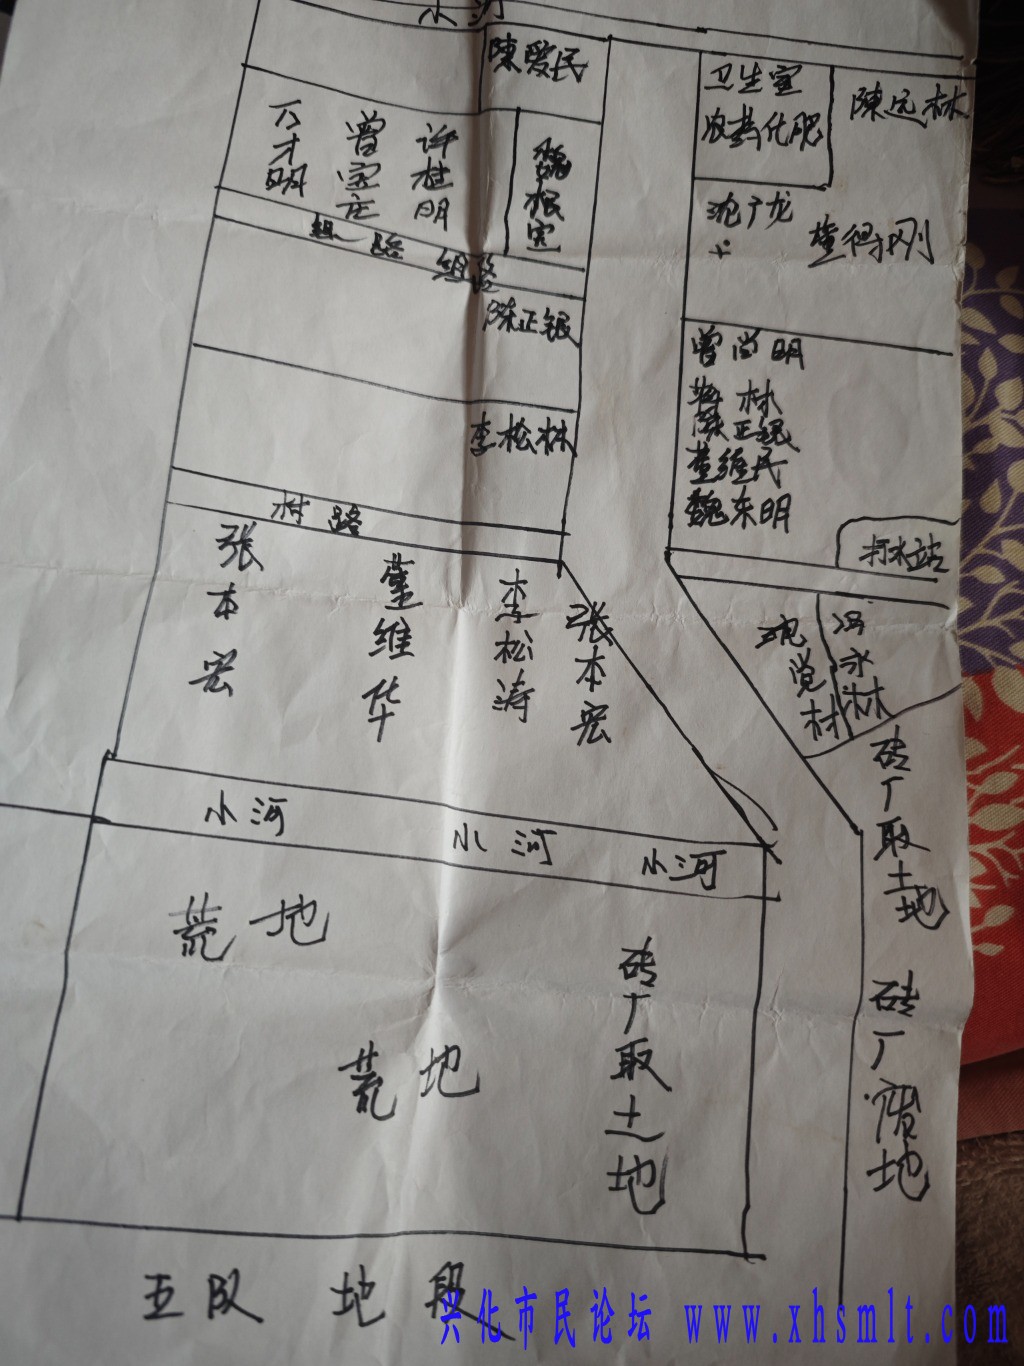 小河
陳爱民
卫生室
农药化肥
陳远林
万才明
曾宝庄
许桂明
魏根宽
沈广龙
董得刚
组路
组路
陈正银
曾尚明
林
陈正
李松林
董维民
魏东明
村路
打水站
张本宏
董维华
李松涛
张本宏
沈觉林
永林
小河
小河
小河
砖厂取土地
荒地
荒地
砖厂取土地
砖厂
地
五队 地段
兴化市民论坛 www.xhsmlt.com